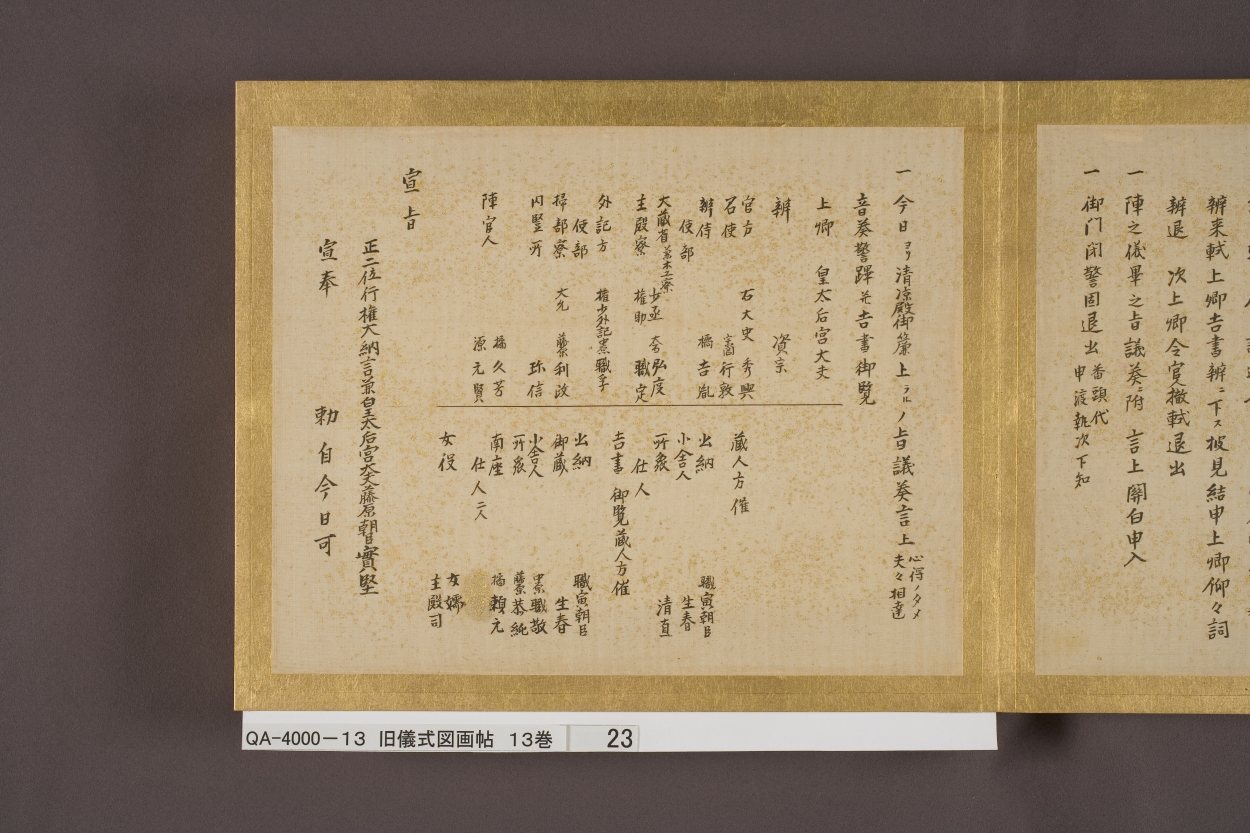 辨来軾上卿吉書辨ニ下ス披見結申上卿仰々詞
辨退　次上卿令寔撤軾退出
一 陣之儀畢之旨議奏ニ附　言上關白申入
一 御門閉警固退出 番頭代
申渡執次下知
一 今日ヨリ清凉殿御簾上ラルノ旨議奏言上 心得ノタメ
夫々相達
音奏警蹕并吉書御覧
上卿　皇太后宮大夫
辨　資宗
官方　右大史　秀興
召使　行敦
辨侍　橘吉胤
使部
大蔵省
主殿寮　権助　職定
外記方　権少外記　職孚
使部
掃部寮　大允　利政
内豎所　珎信
陣官人　橘久芳
源元賢
蔵人方催
出納　職寅朝臣
小舎人　生春
所衆　清直
仕人
吉書御覧蔵人方催
出納　職寅朝臣
御蔵　生春
小舎人　職敬
所衆　恭純
南座　橘頼元
仕人二人
女役　女孺
主殿司
宣旨
正二位行権大納言兼皇太后宮大夫藤原朝臣實堅
宣奉　勅自今日可
QA-4000－13 旧儀式図画帖 13巻 23